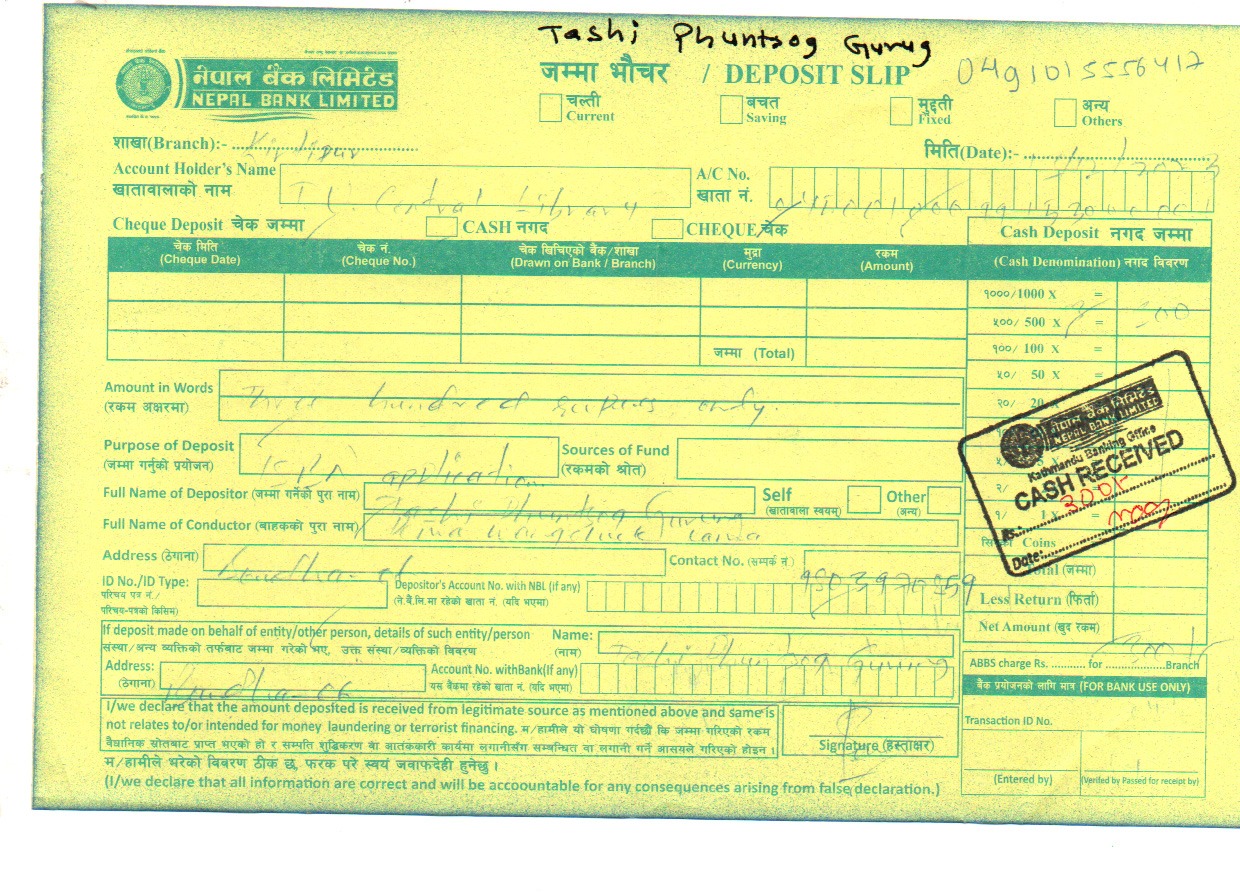 Tashi Phuntsog Gurug
नेपाल बैंक लिमिटेड
NEPAL BANK LIMITED
जम्मा भौचर / DEPOSIT SLIP
चल्ती
Current
बचत
Saving
मुद्दती
Fixed
अन्य
Others
शाखा(Branch):- Kirtipur
मिति(Date):-
Account Holder's Name
खातावालाको नाम
T.U. Central Library
A/C No.
खाता नं.
Cheque Deposit चेक जम्मा
CASH नगद
CHEQUE चेक
Cash Deposit नगद जम्मा
चेक मिति
(Cheque Date)
चेक नं.
(Cheque No.)
चेक खिचिएको बैंक/शाखा
(Drawn on Bank / Branch)
मुद्रा
(Currency)
रकम
(Amount)
(Cash Denomination) नगद विवरण
१०००/1000 X =
५००/ 500 X =
१००/ 100 X =
जम्मा (Total)
५०/ 50 X =
२०/ 20
Amount in Words
(रकम अक्षरमा)
Three hundred rupees only.
Purpose of Deposit
(जम्मा गर्नुको प्रयोजन)
application
Sources of Fund
(रकमको श्रोत)
नेपाल बैंक लिमिटेड
NEPAL BANK LIMITED
Kathmandu Banking Office
CASH RECEIVED
Rs.:
Date:
Full Name of Depositor (जम्मा गर्नेको पुरा नाम)
Tashi Phuntsog Gurung
Self
(खातावाला स्वयम्)
Other
(अन्य)
२/
१/ 1 X =
Full Name of Conductor (बाहकको पुरा नाम)
Coins
Address (ठेगाना)
Boudha-06
Contact No. (सम्पर्क नं.)
Total (जम्मा)
ID No./ID Type:
परिचय पत्र नं./
परिचय-पत्रको किसिम)
Depositor's Account No. with NBL (if any)
(ने.बैं.लि.मा रहेको खाता नं. (यदि भएमा)
Less Return (फिर्ता)
Net Amount (खुद रकम)
If deposit made on behalf of entity/other person, details of such entity/person
संस्था/अन्य व्यक्तिको तर्फबाट जम्मा गरेको भए, उक्त संस्था/व्यक्तिको विवरण
Name:
(नाम)
Tashi Phuntsog Gurung
Address:
(ठेगाना)
Boudha-06
Account No. withBank(If any)
यस बैंकमा रहेको खाता नं. (यदि भएमा)
ABBS charge Rs. ............ for ................Branch
बैंक प्रयोजनको लागि मात्र (FOR BANK USE ONLY)
I/we declare that the amount deposited is received from legitimate source as mentioned above and same is
not relates to/or intended for money laundering or terrorist financing. म/हामीले यो घोषणा गर्दछौं कि जम्मा गरिएको रकम
वैधानिक स्रोतबाट प्राप्त भएको हो र सम्पति शुद्धिकरण वा आतंककारी कार्यमा लगानीसँग सम्बन्धित वा लगानी गर्ने आसयले गरिएको होइन ।
Signature (हस्ताक्षर)
Transaction ID No.
म/हामीले भरेको विवरण ठीक छ, फरक परे स्वयं जवाफदेही हुनेछु ।
(I/we declare that all information are correct and will be accoountable for any consequences arising from false declaration.)
(Entered by)
(Verifed by Passed for receipt by)